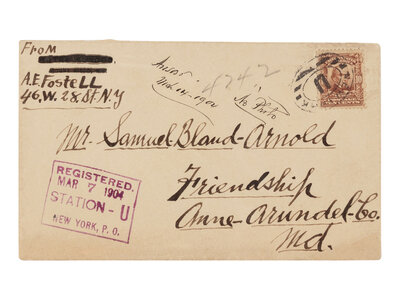 From
A.E. Fostell
46, W. 28 St. N.Y
4242
"No Photo"
Mr. Samuel Bland-Arnold
Friendship
Anne-Arundel-Co.
Md.
REGISTERED.
MAR 7 1904
STATION-U
NEW YORK, P.O.
U